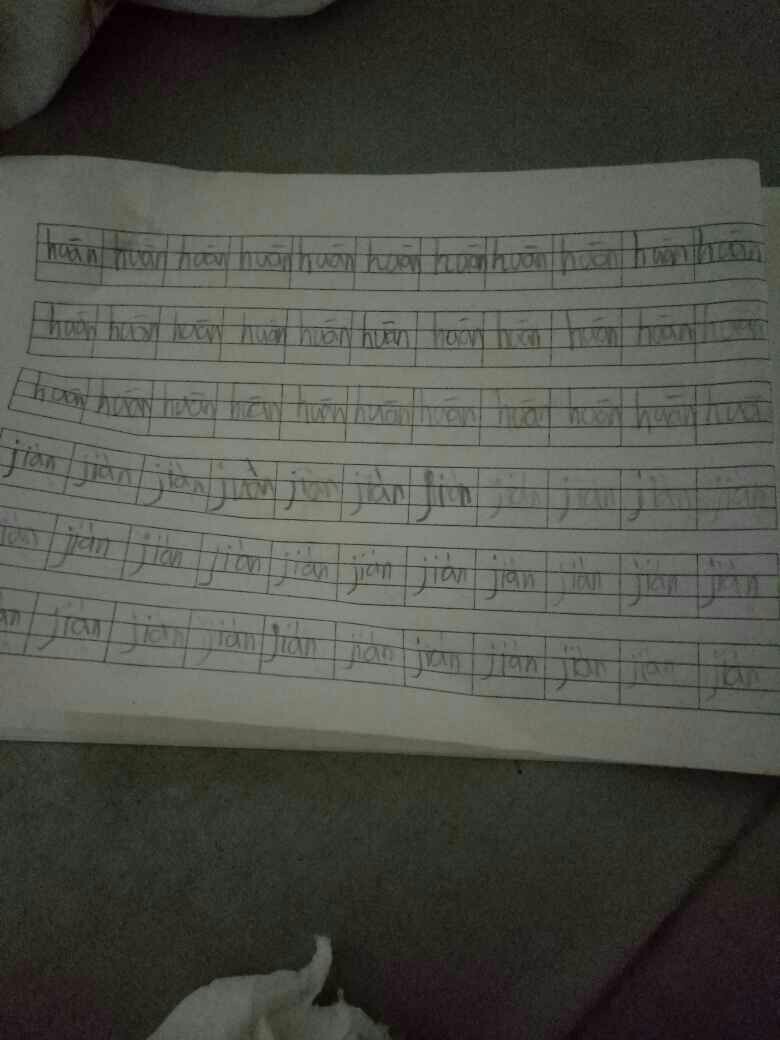 huān huān huān huān huān huān huān huān huān huān huān
huān huān huān huān huān huān huān huān huān huān huān
huān huān huān huān huān huān huān huā huān huān huā
jiàn jiàn jiàn juàn jiàn jiàn jiàn jiàn jiàn jiàn jiàn
jiàn jiàn jiàn jiàn jiàn jiàn jiàn jiàn jiàn jiàn jiàn
àn jiàn jiàn jiàn jiàn jiàn jiàn jiàn jiàn jiàn jiàn